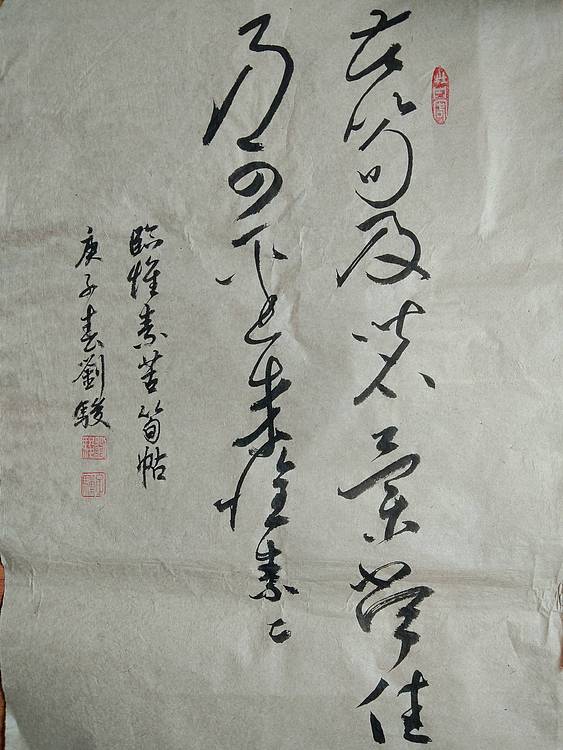 苦笋及茗异常佳
乃可径来怀素上
临怀素苦笋帖
庚子春劉駿